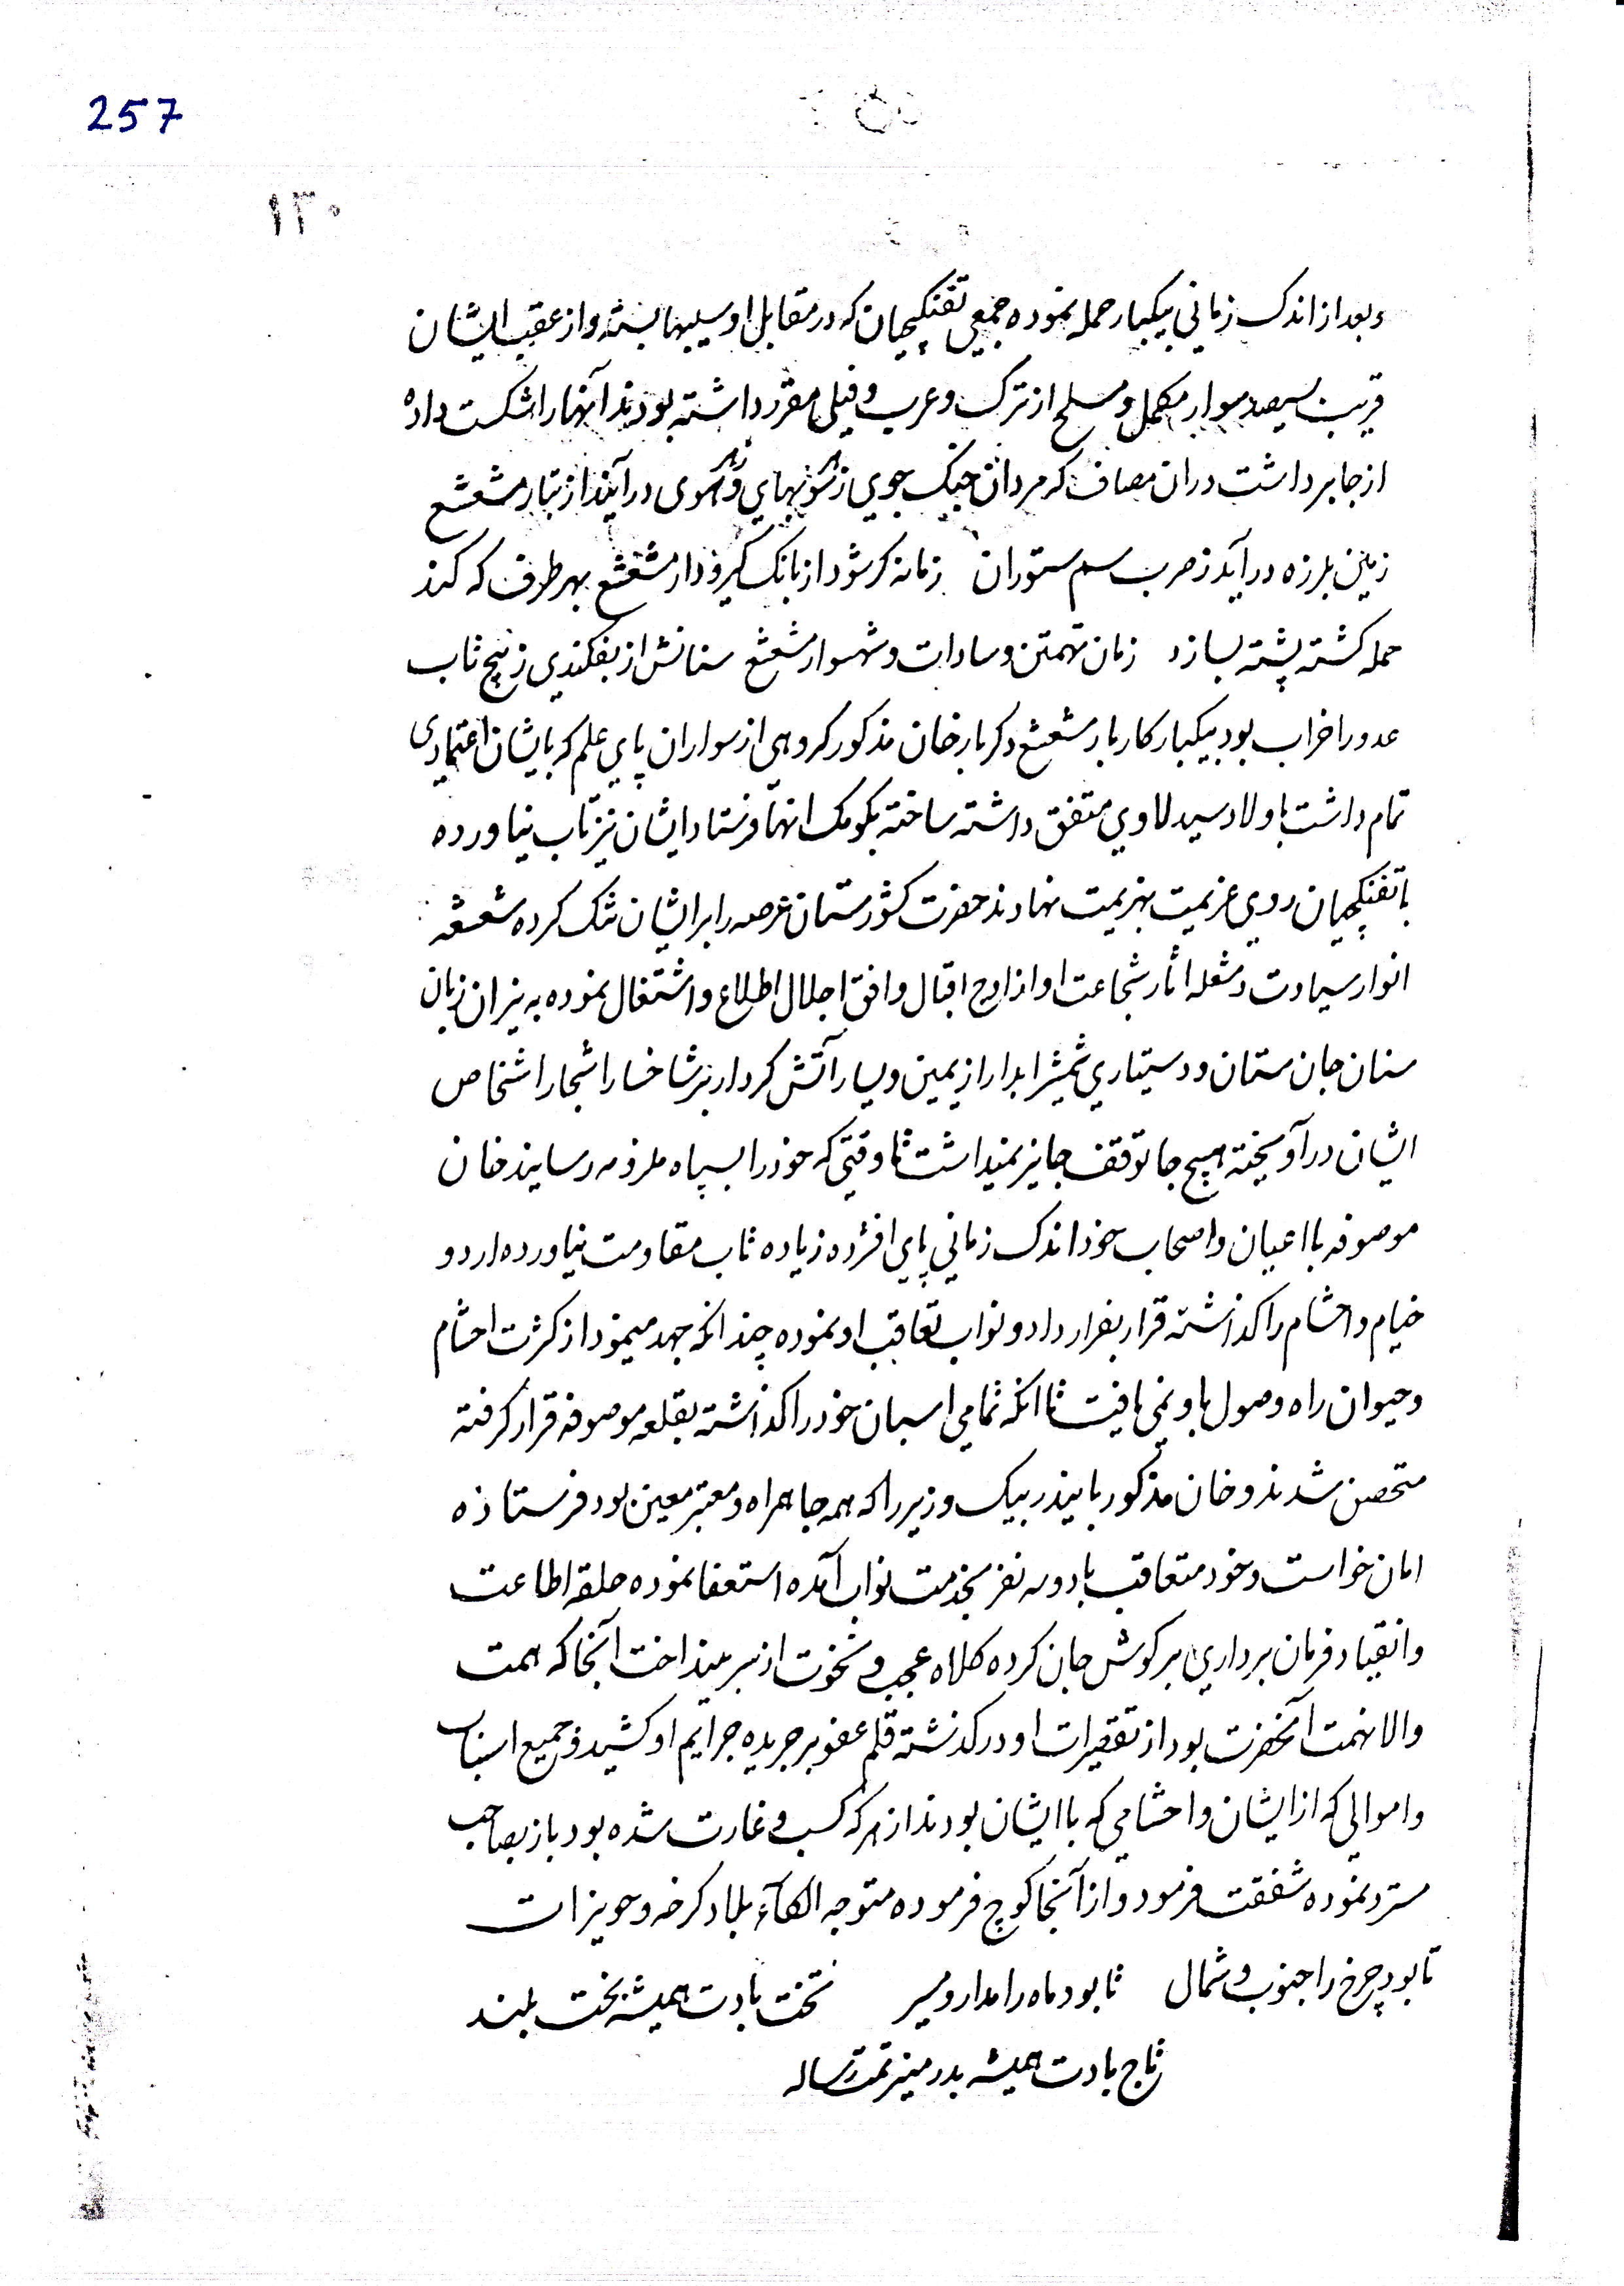 257
۱۳۰
و بعد از اندک زماني بیکبار حمله نموده جمعي تفنکچیان که در مقابل او سیبها بسته و از عقب ایشان
قریب سیصد سوار مکمل و مسلح از ترک و عرب و فیلی مقرر داشته بودند آنهارا شکست داده
از جا برداشت دران مصاف که مردان جنک جوي ز در آیند از تبار مشعشع
زمین بلرزه در آید ز ضرب سم ستوران زمانه کر شود از بانک کیرو دار مشعشع بهر طرف که کند
حمله کشته پشته بسازد زمان تهمتن و سادات و شهسوار مشعشع سنانش از بفکندي ز پیچ تاب
عدو را خراب بود بیکبار کاربار مشعشع دکر بار خان مذکور کروهی از سواران پاي علم که بایشان اعتمادی
تمام داشت باولاد سید لاوي متفق داشته ساخته بکومک انها فرستاد ایشان نیز تاب نیاورده
با تفنکچیان روي عزیمت بهزیمت نهادند حضرت کشورستان عرصه را بر ایشان تنک کرده شعشعه
انوار سیادت و مشعله اثار شجاعت او از اوج اقبال وافق اجلال اطلاع و اشتغال نموده به نیران زبان
سنان جان ستان و دستیاري شمشیر ابدار از یمین و یسار آتش کردار بر شاخسار اشجار اشخاص
ایشان در آویخته هیچ جا توقف جایز نمیداشت تا وقتي که خود را بسپاه ملزمه رسانید خان
موصوفه با اعیان و اصحاب خود اندک زماني پاي افشرده زیاده تاب مقاومت نیاورده اردو
خیام و احشام را کذاشته قرار بفرار داد و نواب تعاقب او نموده چندانکه جهد مینمود از کثرت احشام
و حیوان راه وصول باو نمي یافت تا انکه تمامي اسبان خود را کذاشته بقلعه موصوفه قرار کرفته
متحصن شدند و خان مذکور بایندر بیک وزیر را که همه جا همراه و معتبر معین بود فرستاده
امان خواست و خود متعاقب با دو سه نفر بخدمت نواب آمده استعفا نموده حلقه اطاعت
و انقیاد فرمان برداري بر کوش جان کرده کلاه عجب و نخوت از سر بینداخت آنجا که همت
والا نهمت آنحضرت بود از تقصیرات او در کذشته قلم عفو بر جریده جرایم او کشید و جمیع اسباب
و اموالي که از ایشان و احشامي که با ایشان بودند از هر که کسب و غارت شده بود باز بصاحب
مسترد نموده شفقت فرمود و از آنجا کوچ فرموده متوجه الکآء بلاد کرخه و حویزات
تا بود چرخ را جنوب و شمال تا بود ماه را مدار و مسیر تخت بادت همیشه بخت بلند
تاج بادت همیشه بدر منیر تمت رساله